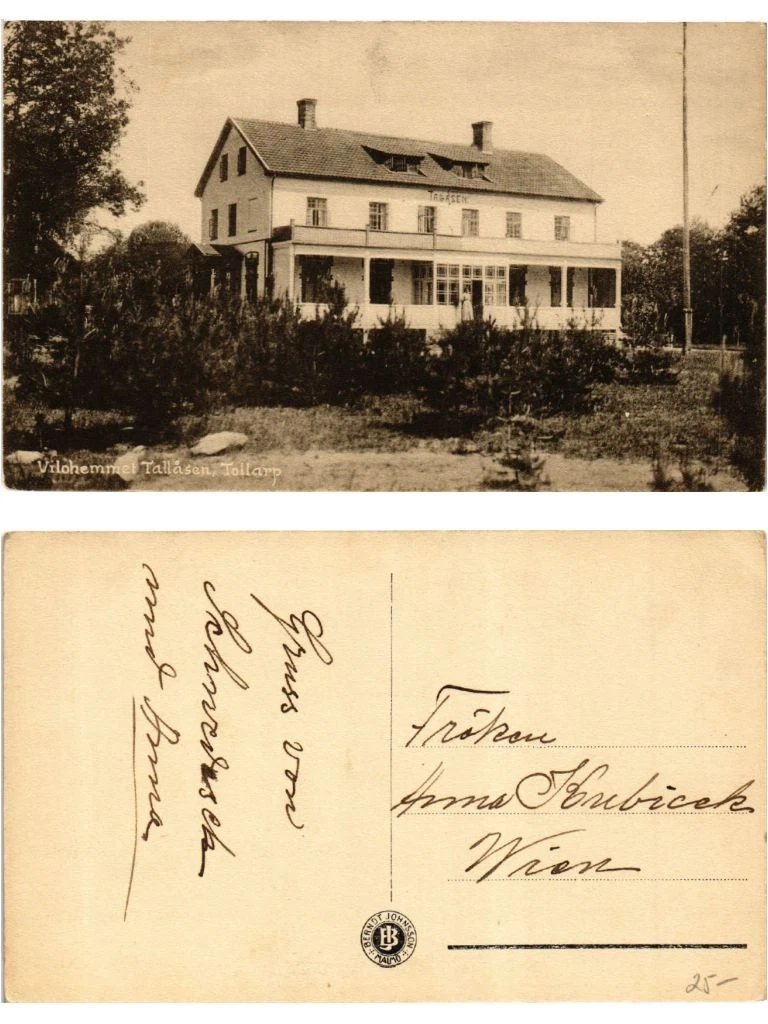 TALÅSEN.
Vilohemmet Tallåsen, Tollarp
Gruss von
Schwedisch
und Anna
Fröken
Anna Kubicek
Wien
BERNDT JOHNSSON
BJ
MALMÖ
25-